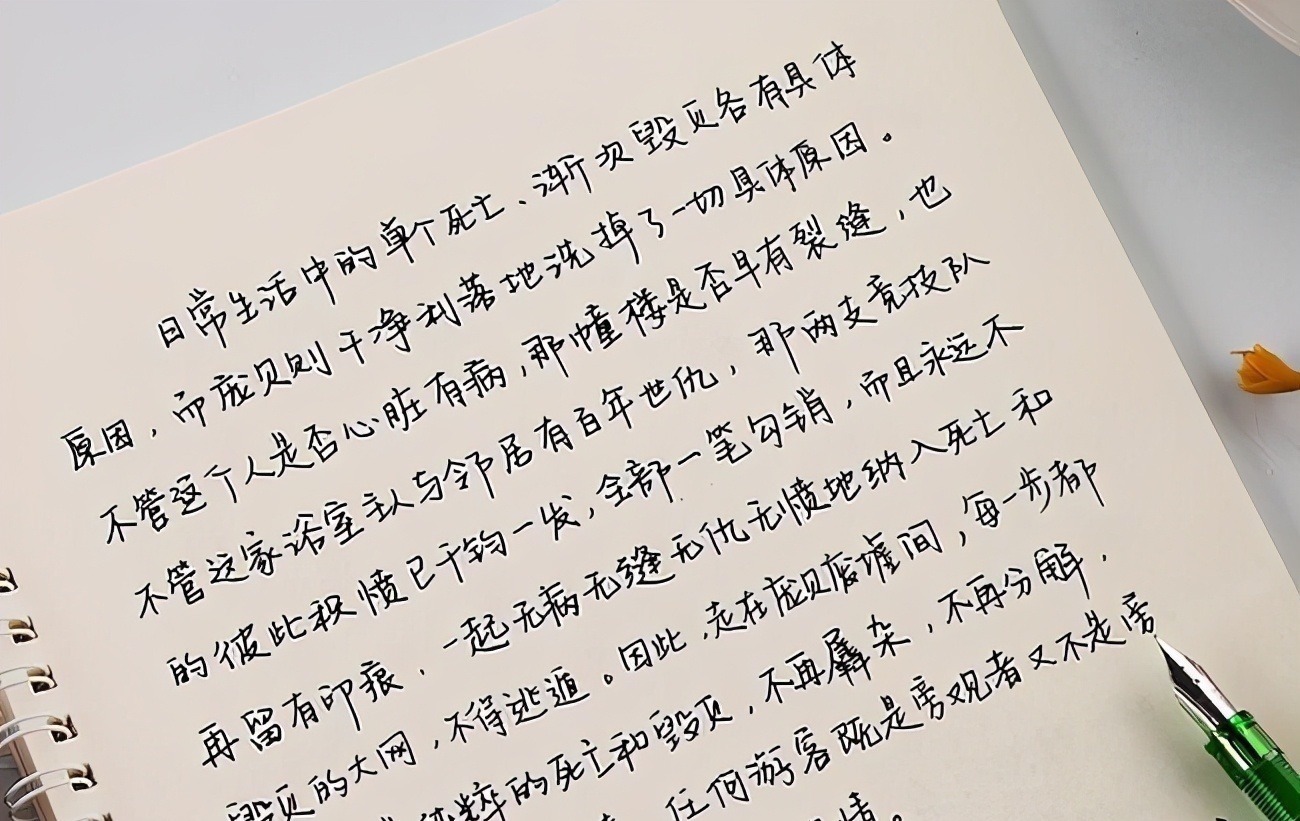 日常生活中的单个死亡、渐次毁灭各有具体
原因，而庞贝则干净利落地洗掉了一切具体原因。
不管这个人是否心脏有病，那幢楼是否早有裂缝，也
不管这家浴室主人与邻居有百年世仇，那两支竞技队
的彼此积愤已千钧一发，全部一笔勾销，而且永远不
再留有印痕，一起无病无缝无仇无愤地纳入死亡和
毁灭的大网，不得逃遁。因此，走在庞贝废墟间，每一步都
纯粹的死亡和毁灭，不再羼杂，不再分解，
任何游客既是旁观者又不是旁
情。